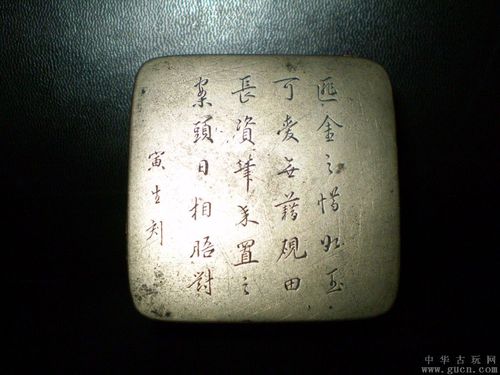 匪金之惜如玉
可愛無藉硯田
長資筆耒置之
案頭日相晤對
寅生刻
中华古玩网
www.gucn.com